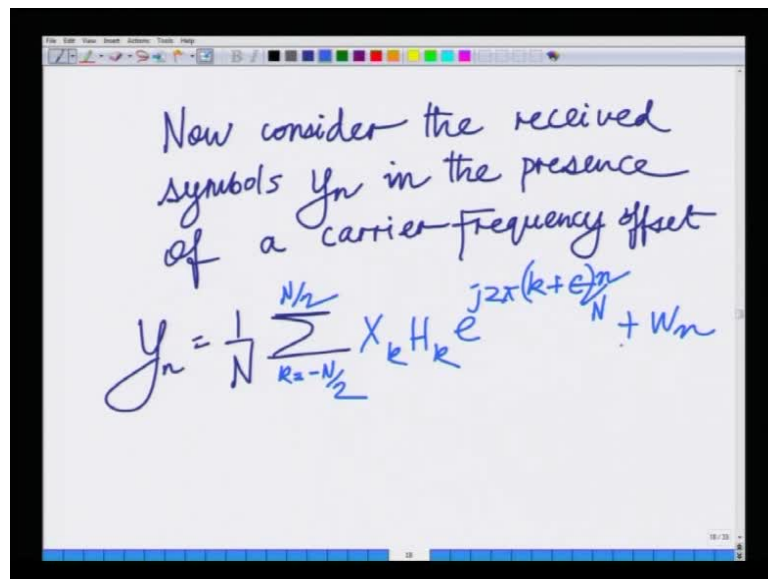 File Edit View Insert Actions Tools Help
Now consider the received
symbols yn in the presence
of a carrier frequency offset
y_n = 1/N ∑_{k=-N/2}^{N/2} X_k H_k e^{j2π(k+ε)n/N} + W_n
18/33
18